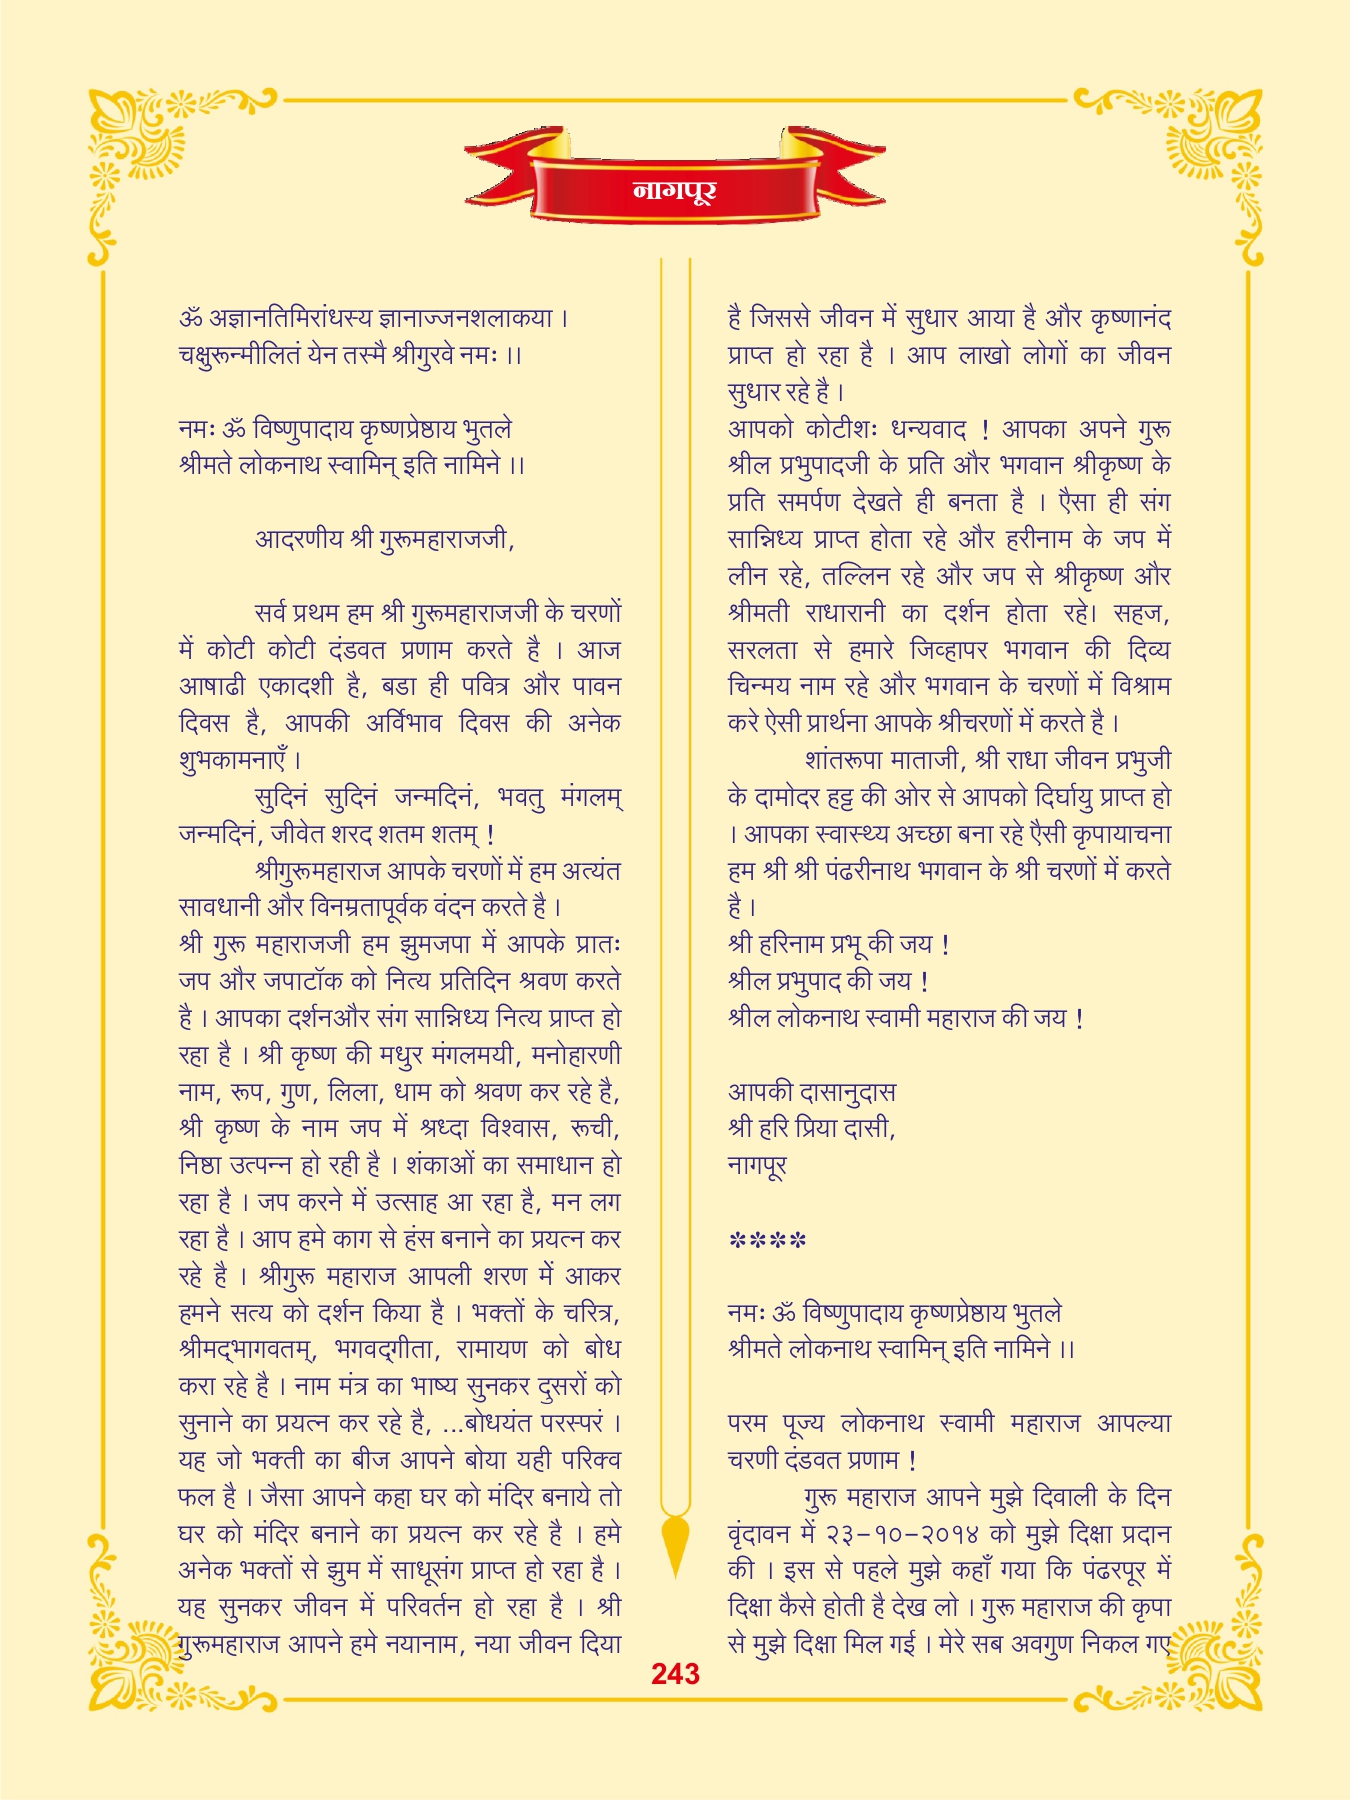 नागपूर
ॐ अज्ञानतिमिरांधस्य ज्ञानाज्जनशलाकया ।
चक्षुरून्मीलितं येन तस्मै श्रीगुरवे नमः ।।
नमः ॐ विष्णुपादाय कृष्णप्रेष्ठाय भुतले
श्रीमते लोकनाथ स्वामिन् इति नामिने ।।
आदरणीय श्री गुरूमहाराजजी,
सर्व प्रथम हम श्री गुरूमहाराजजी के चरणों
में कोटी कोटी दंडवत प्रणाम करते है । आज
आषाढी एकादशी है, बडा ही पवित्र और पावन
दिवस है, आपकी अर्विभाव दिवस की अनेक
शुभकामनाएँ ।
सुदिनं सुदिनं जन्मदिनं, भवतु मंगलम्
जन्मदिनं, जीवेत शरद शतम शतम् !
श्रीगुरूमहाराज आपके चरणों में हम अत्यंत
सावधानी और विनम्रतापूर्वक वंदन करते है ।
श्री गुरू महाराजजी हम झुमजपा में आपके प्रातः
जप और जपाटॉक को नित्य प्रतिदिन श्रवण करते
है । आपका दर्शनऔर संग सान्निध्य नित्य प्राप्त हो
रहा है । श्री कृष्ण की मधुर मंगलमयी, मनोहारणी
नाम, रूप, गुण, लिला, धाम को श्रवण कर रहे है,
श्री कृष्ण के नाम जप में श्रध्दा विश्वास, रूची,
निष्ठा उत्पन्न हो रही है । शंकाओं का समाधान हो
रहा है । जप करने में उत्साह आ रहा है, मन लग
रहा है । आप हमे काग से हंस बनाने का प्रयत्न कर
रहे है । श्रीगुरू महाराज आपली शरण में आकर
हमने सत्य को दर्शन किया है । भक्तों के चरित्र,
श्रीमद्भागवतम्, भगवद्गीता, रामायण को बोध
करा रहे है । नाम मंत्र का भाष्य सुनकर दुसरों को
सुनाने का प्रयत्न कर रहे है, ...बोधयंत परस्परं ।
यह जो भक्ती का बीज आपने बोया यही परिक्व
फल है । जैसा आपने कहा घर को मंदिर बनाये तो
घर को मंदिर बनाने का प्रयत्न कर रहे है । हमे
अनेक भक्तों से झुम में साधूसंग प्राप्त हो रहा है ।
यह सुनकर जीवन में परिवर्तन हो रहा है । श्री
गुरूमहाराज आपने हमे नयानाम, नया जीवन दिया
है जिससे जीवन में सुधार आया है और कृष्णानंद
प्राप्त हो रहा है । आप लाखो लोगों का जीवन
सुधार रहे है ।
आपको कोटीशः धन्यवाद ! आपका अपने गुरू
श्रील प्रभुपादजी के प्रति और भगवान श्रीकृष्ण के
प्रति समर्पण देखते ही बनता है । एैसा ही संग
सान्निध्य प्राप्त होता रहे और हरीनाम के जप में
लीन रहे, तल्लिन रहे और जप से श्रीकृष्ण और
श्रीमती राधारानी का दर्शन होता रहे। सहज,
सरलता से हमारे जिव्हापर भगवान की दिव्य
चिन्मय नाम रहे और भगवान के चरणों में विश्राम
करे ऐसी प्रार्थना आपके श्रीचरणों में करते है ।
शांतरूपा माताजी, श्री राधा जीवन प्रभुजी
के दामोदर हट्ट की ओर से आपको दिर्घायु प्राप्त हो
। आपका स्वास्थ्य अच्छा बना रहे एैसी कृपायाचना
हम श्री श्री पंढरीनाथ भगवान के श्री चरणों में करते
है ।
श्री हरिनाम प्रभू की जय !
श्रील प्रभुपाद की जय !
श्रील लोकनाथ स्वामी महाराज की जय !
आपकी दासानुदास
श्री हरि प्रिया दासी,
नागपूर
****
नमः ॐ विष्णुपादाय कृष्णप्रेष्ठाय भुतले
श्रीमते लोकनाथ स्वामिन् इति नामिने ।।
परम पूज्य लोकनाथ स्वामी महाराज आपल्या
चरणी दंडवत प्रणाम !
गुरू महाराज आपने मुझे दिवाली के दिन
वृंदावन में २३-१०-२०१४ को मुझे दिक्षा प्रदान
की । इस से पहले मुझे कहाँ गया कि पंढरपूर में
दिक्षा कैसे होती है देख लो । गुरू महाराज की कृपा
से मुझे दिक्षा मिल गई । मेरे सब अवगुण निकल गए
243